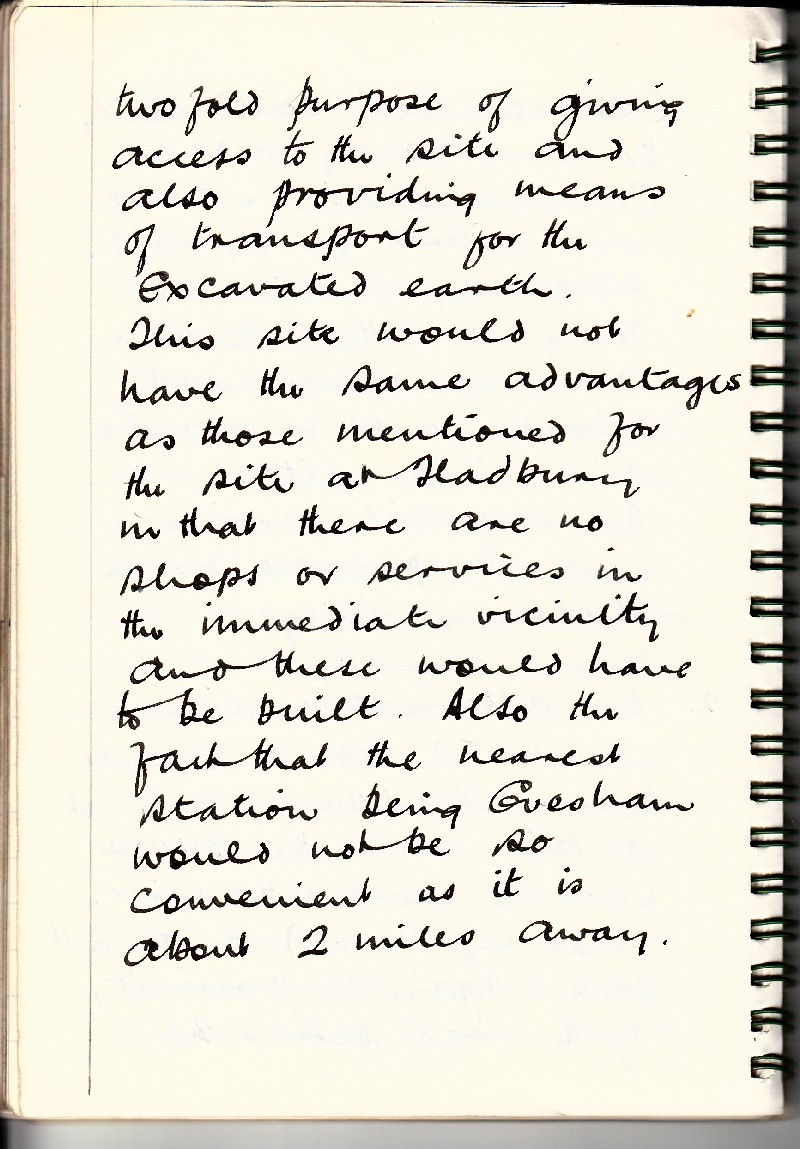 twofold purpose of giving
access to the site and
also providing means
of transport for the
Excavated earth.
This site would not
have the same advantages
as those mentioned for
the site at Fladbury
in that there are no
shops or services in
the immediate vicinity
and these would have
to be built. Also the
fact that the nearest
station being Evesham
would not be so
convenient as it is
about 2 miles away.